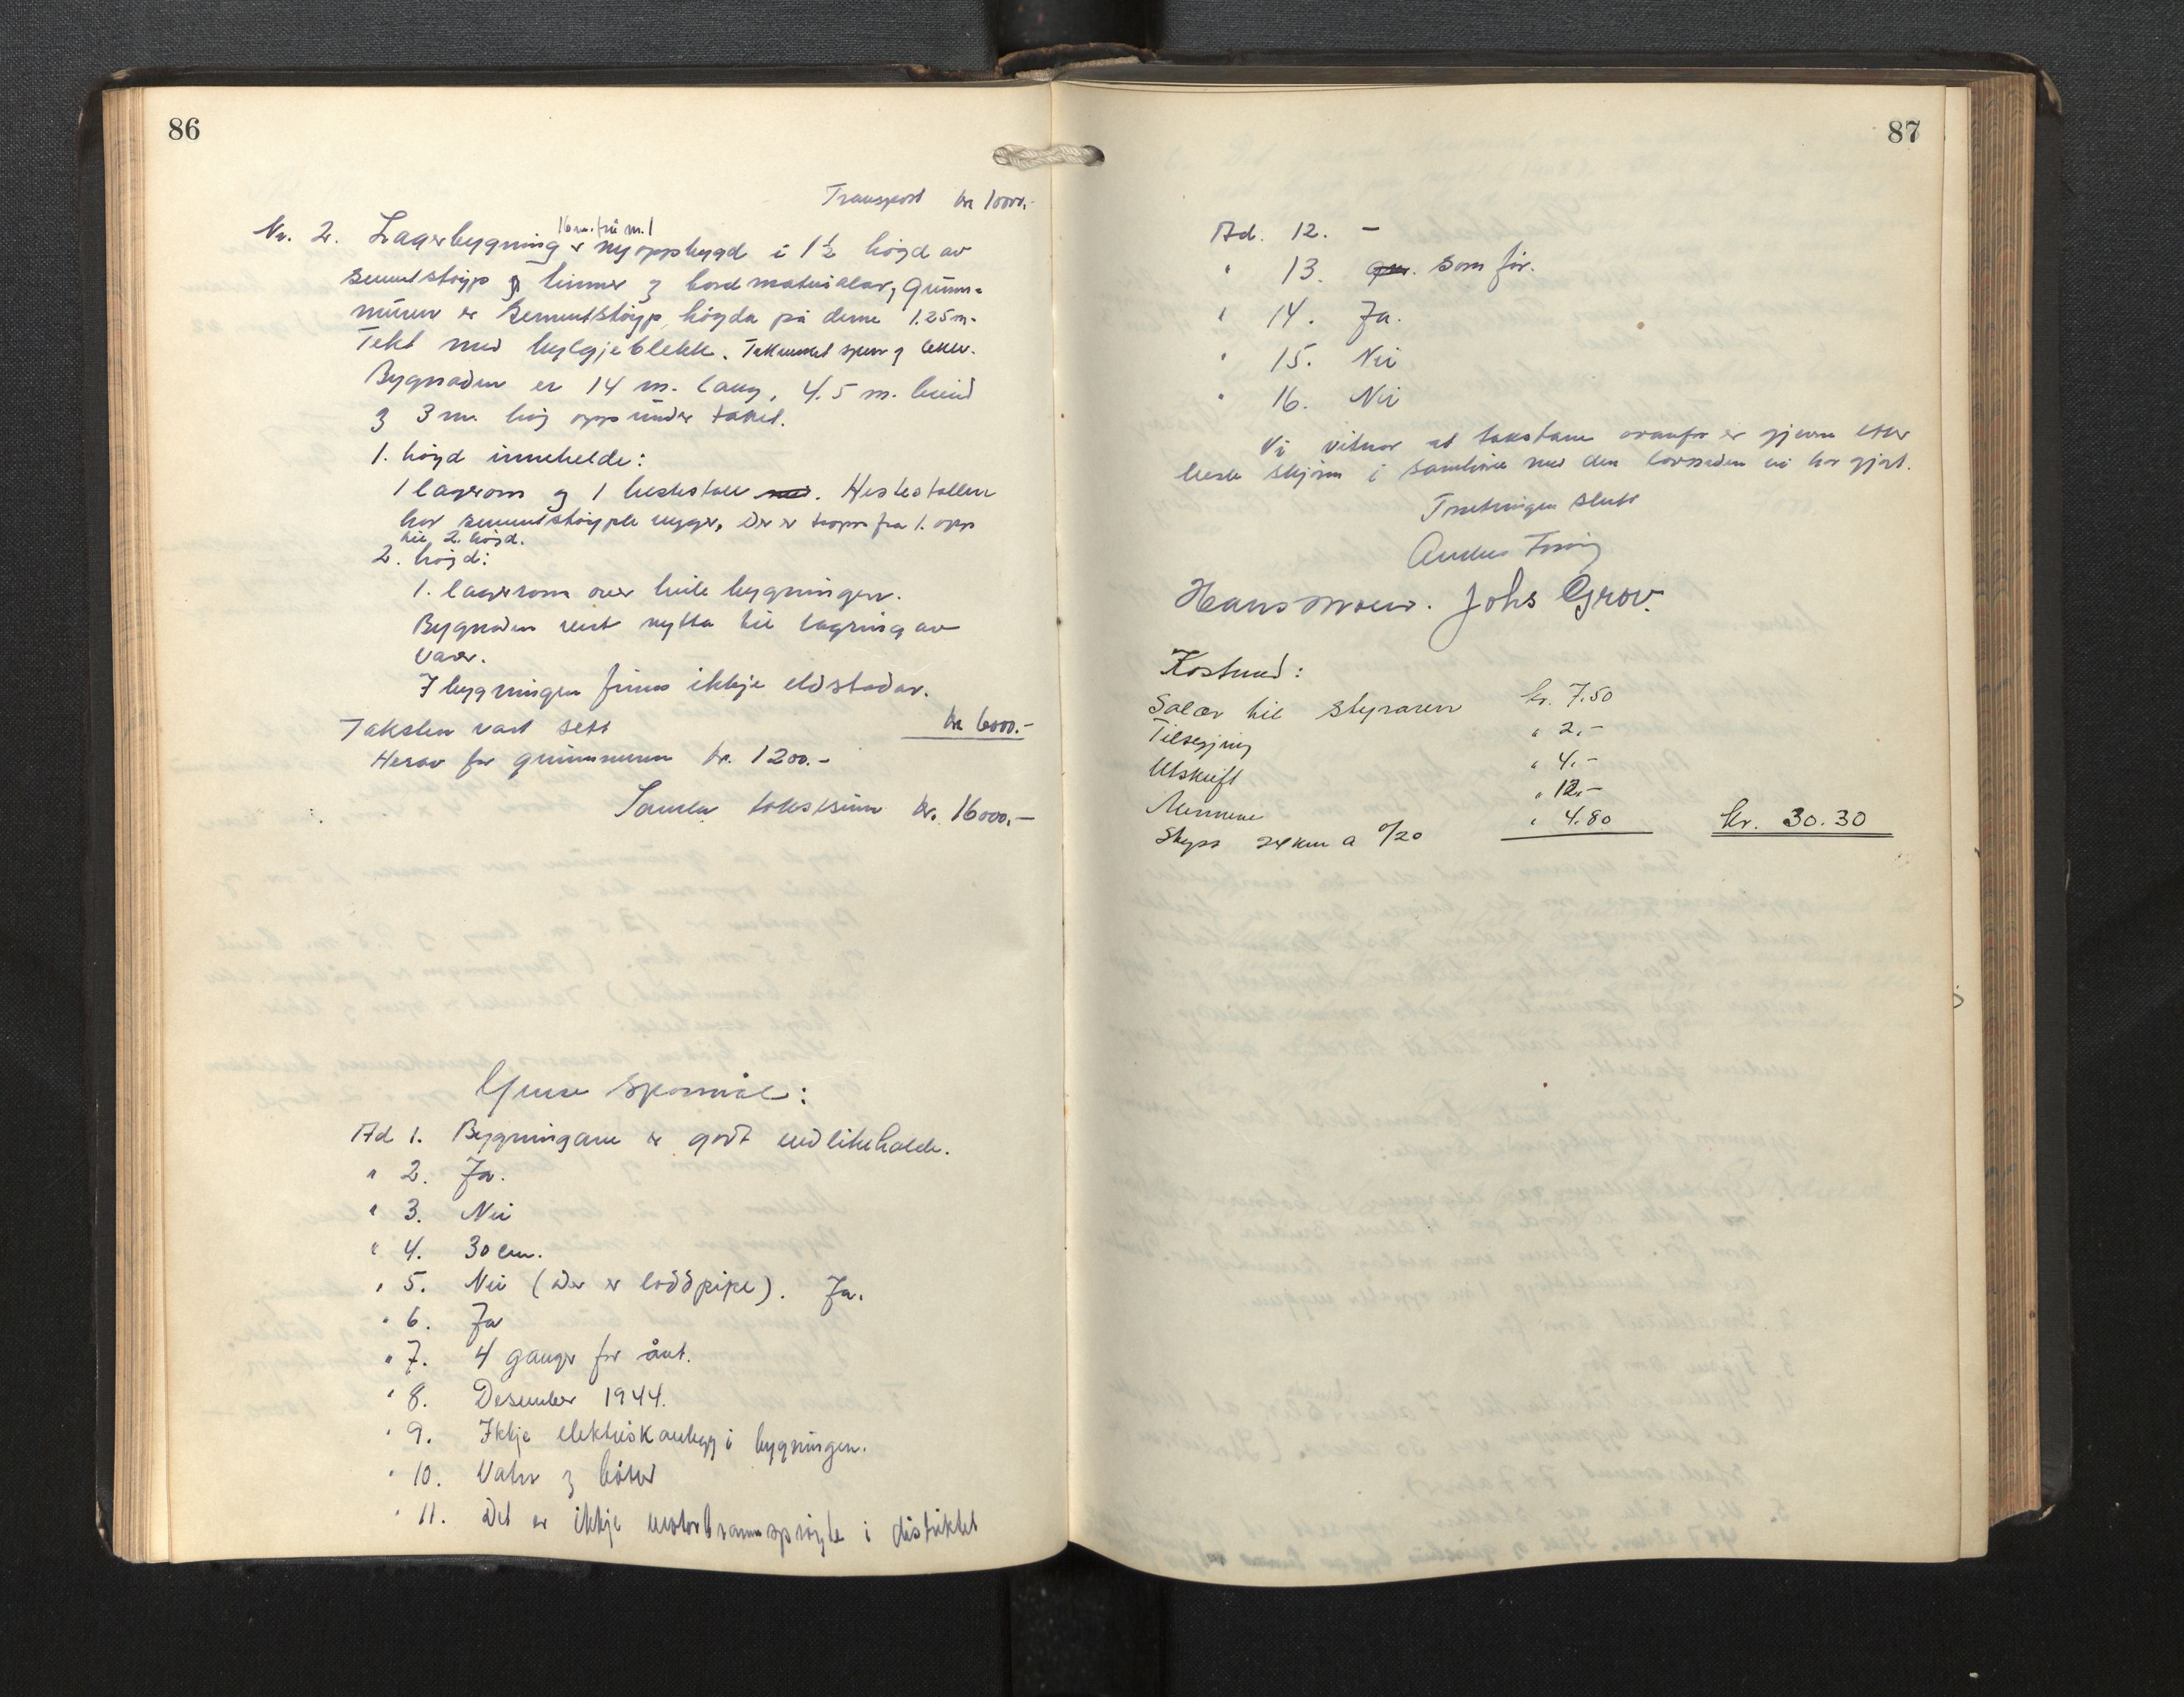 86
Transport kr 10000.-
16 m. frå nr. 1
Nr. 2. Lagerbygning er nyoppbygd i 1½ högd av
sementstöyp og timmer og bordmaterialar, Grunn-
muren er sementstöyp, högda på denne 1.25 m.
Tekt med bylgjeblekk. Takverket sperr og lekter.
Bygnaden er 14 m. lang, 4.5 m. breid
og 3 m. høg opp under taket.
1. högd inneheld:
1 lagerom og 1 hestestall. Hestestallen
har sementstöypte vegger, der er tropp fra 1. opp
til 2. högd.
2. högd:
1. lagerrom over heile bygningen.
Bygnaden vert nytta til lagring av
varer.
I bygningen finns ikkje eldstadar.
Taksten vart sett kr 6000.-
Herav for grunnmuren kr. 1200.-
Samla takstsum kr. 16000.-
Ymse spörsmål:
Ad 1. Bygningane er godt vedlikehalde.
" 2. Ja.
" 3. Nei
" 4. 30 cm.
" 5. Nei (Der er loddpipe). Ja.
" 6. Ja
" 7. 4 ganger for året.
" 8. Desember 1944.
" 9. Ikkje elektrisk anlegg i bygningen.
" 10. Vatn og bötter
" 11. Det er ikkje motorbrannspröyte i distriktet
87
Ad. 12. -
" 13. som för.
" 14. Ja.
" 15. Nei
" 16. Nei
Vi vitnar at takstane ovanfor er gjevne etter
beste skjönn i samhöve med den lovnaden vi har gjort.
Forretningen slutt
Hans Moen. Johs Grov.
Kostnad:
Salær til styraren kr. 7.50
Tilsegjing " 2.-
Utskrift " 4.-
Mennene " 12.-
Skyss 24 km a 0/20 " 4.80 kr. 30.30